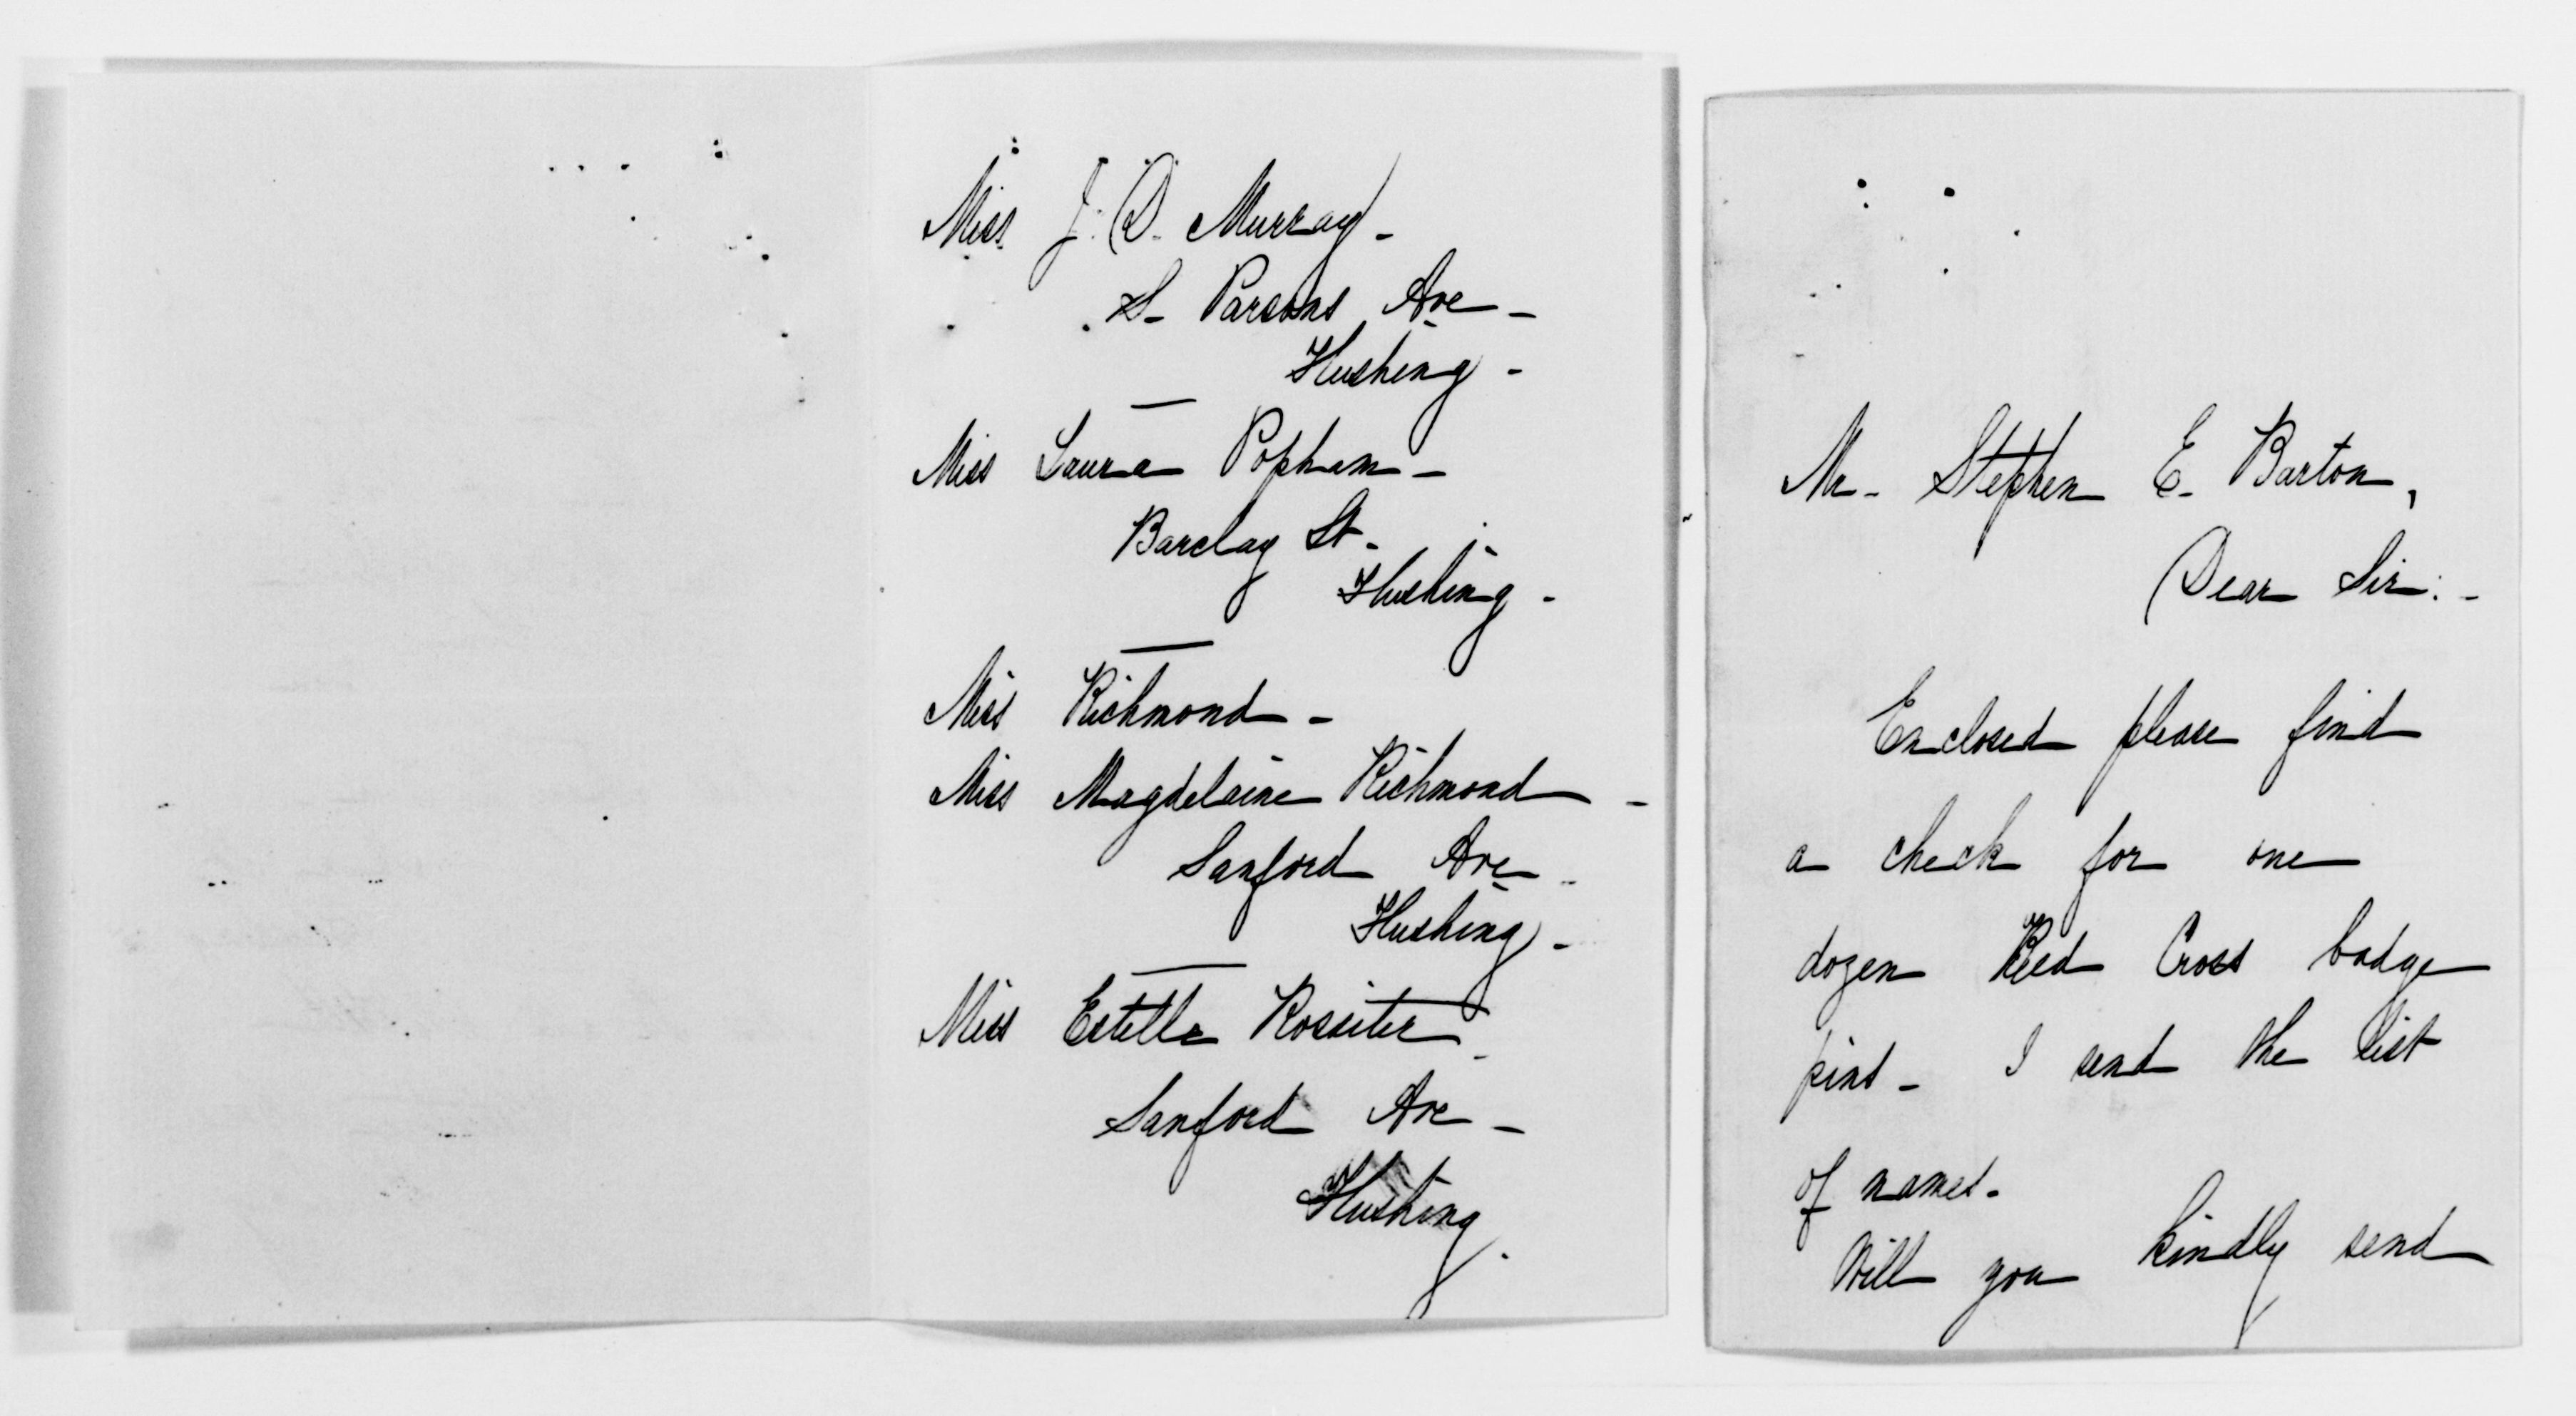 Miss J. D. Murray -
S- Parsons Ave -
Flushing -
Miss Laura Popham -
Barclay St -
Flushing -
Miss Richmond -
Miss Magdelaine Richmond -
Sanford Ave -
Flushing -
Miss Estelle Rossiter -
Sanford Ave -
Flushing.
Mr - Stephen E- Barton,
Dear Sir: -
Enclosed please find
a check for one
dozen Red Cross badge
pins - I send the list
of names -
Will you kindly send